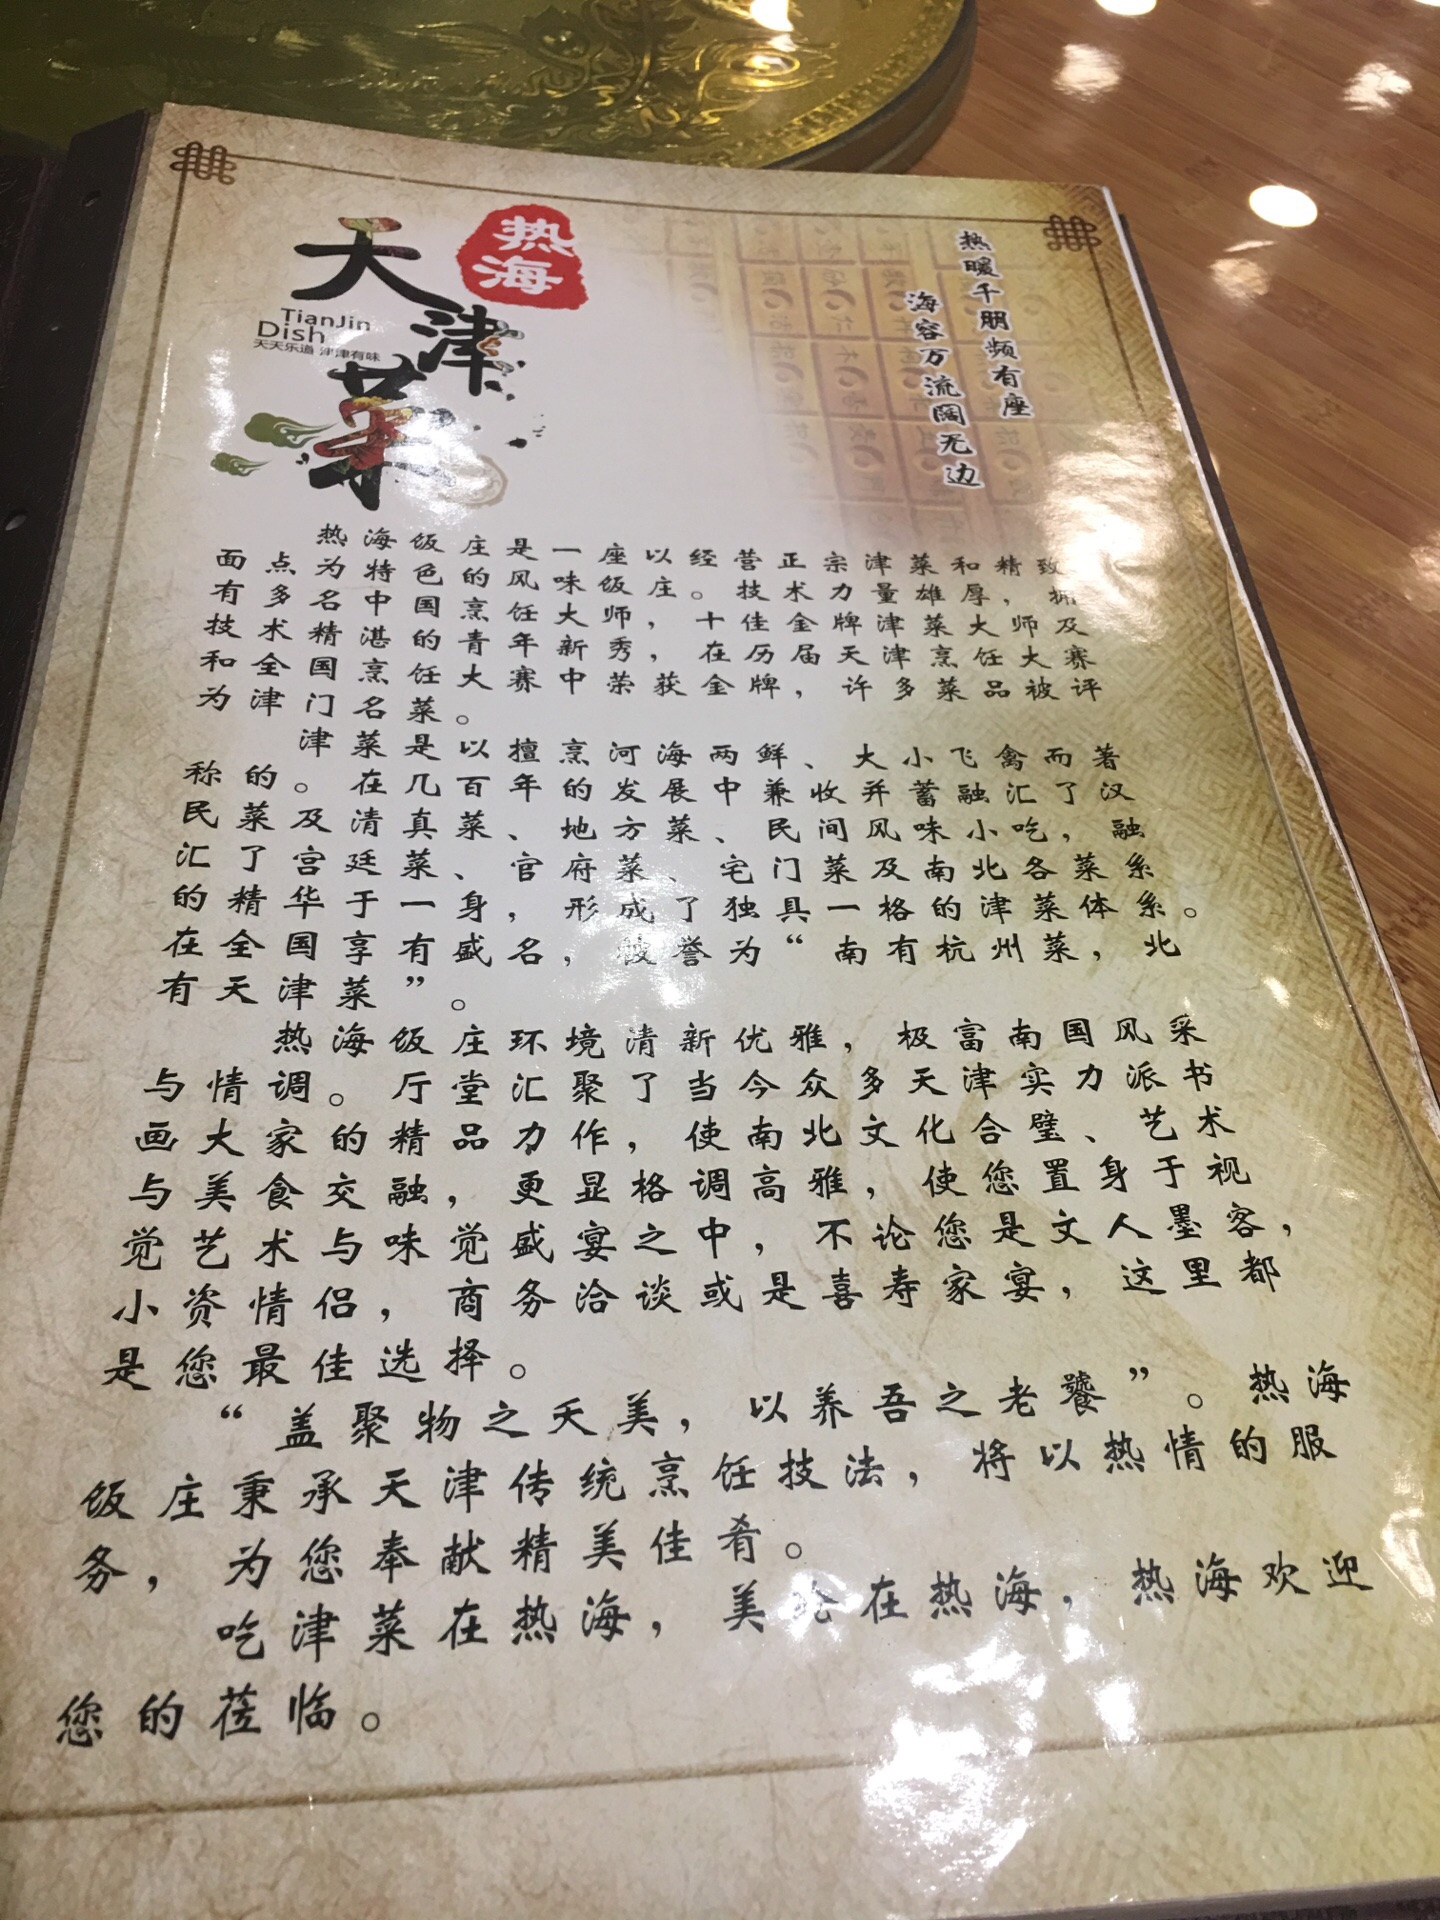 热海
天津菜
TianJin
Dish
天天乐道 津津有味
热暖千朋频有座
海容万流阔无边
热海饭庄是一座以经营正宗津菜和精致
面点为特色的风味饭庄。技术力量雄厚，拥
有多名中国烹饪大师，十佳金牌津菜大师及
技术精湛的青年新秀，在历届天津烹饪大赛
和全国烹饪大赛中荣获金牌，许多菜品被评
为津门名菜。
津菜是以擅烹河海两鲜、大小飞禽而著
称的。在几百年的发展中兼收并蓄融汇了汉
民菜及清真菜、地方菜、民间风味小吃，融
汇了宫廷菜、官府菜、宅门菜及南北各菜系
的精华于一身，形成了独具一格的津菜体系。
在全国享有盛名，被誉为“南有杭州菜，北
有天津菜”。
热海饭庄环境清新优雅，极富南国风采
与情调。厅堂汇聚了当今众多天津实力派书
画大家的精品力作，使南北文化合璧、艺术
与美食交融，更显格调高雅，使您置身于视
觉艺术与味觉盛宴之中，不论您是文人墨客，
小资情侣，商务洽谈或是喜寿家宴，这里都
是您最佳选择。
“盖聚物之夭美，以养吾之老饕”。热海
饭庄秉承天津传统烹饪技法，将以热情的服
务，为您奉献精美佳肴。
吃津菜在热海，美在热海，热海欢迎
您的莅临。